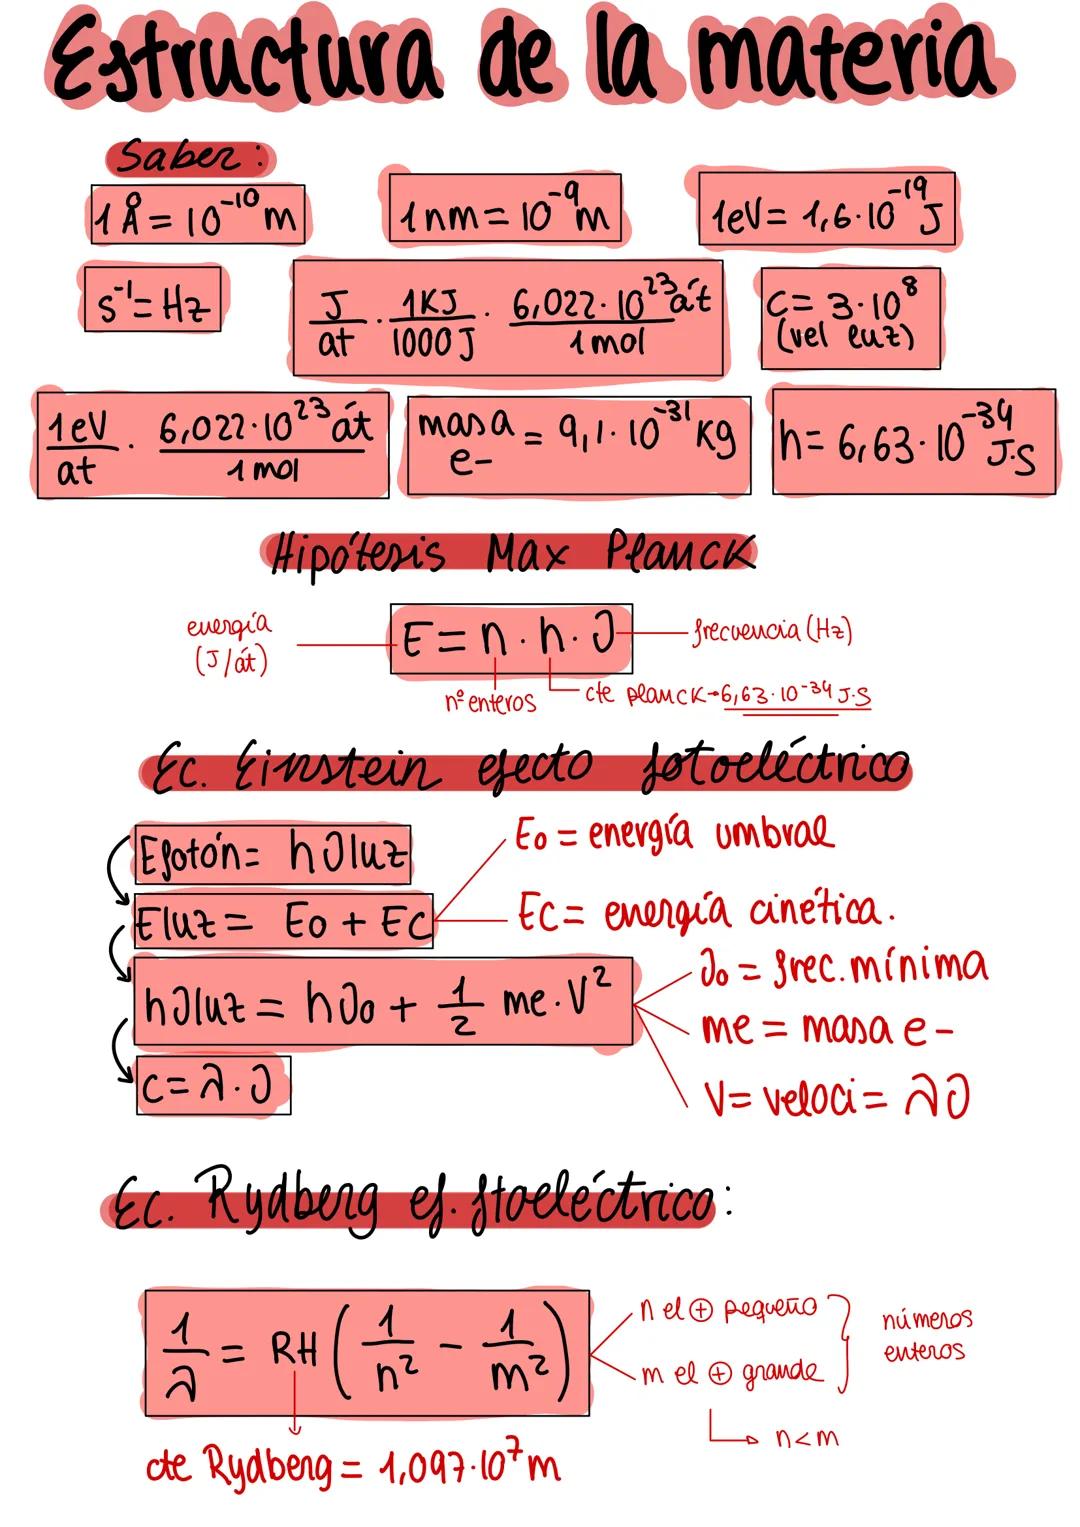 Estructura de la materia
Saber:
1 Å = 10⁻¹⁰ m
1 nm = 10⁻⁹ m
1eV = 1,6·10⁻¹⁹ J
s⁻¹ = Hz
J/at · 1KJ/1000J · 6,022·10²³ át/1 mol
C = 3·10⁸
(vel luz)
1eV/at · 6,022·10²³ át/1 mol
masa e- = 9,1·10⁻³¹ Kg
h = 6,63·10⁻³⁴ J·s
Hipótesis Max Planck
energía
(J/át)
E = n · h · ν
frecuencia (Hz)
nº enteros
cte planck → 6,63·10⁻³⁴ J·s
Ec. Einstein efecto fotoeléctrico
Efotón = hνluz
Eluz = Eo + Ec
hνluz = hνo + 1/2 me·V²
c = λ·ν
Eo = energía umbral
Ec = energía cinética.
νo = frec. mínima
me = masa e-
V = veloci = λν
Ec. Rydberg ef. ftoeléctrico:
1/λ = RH (1/n² - 1/m²)
n el ⊕ pequeño
m el ⊕ grande
números
enteros
n<m
cte Rydberg = 1,097·10⁷ m